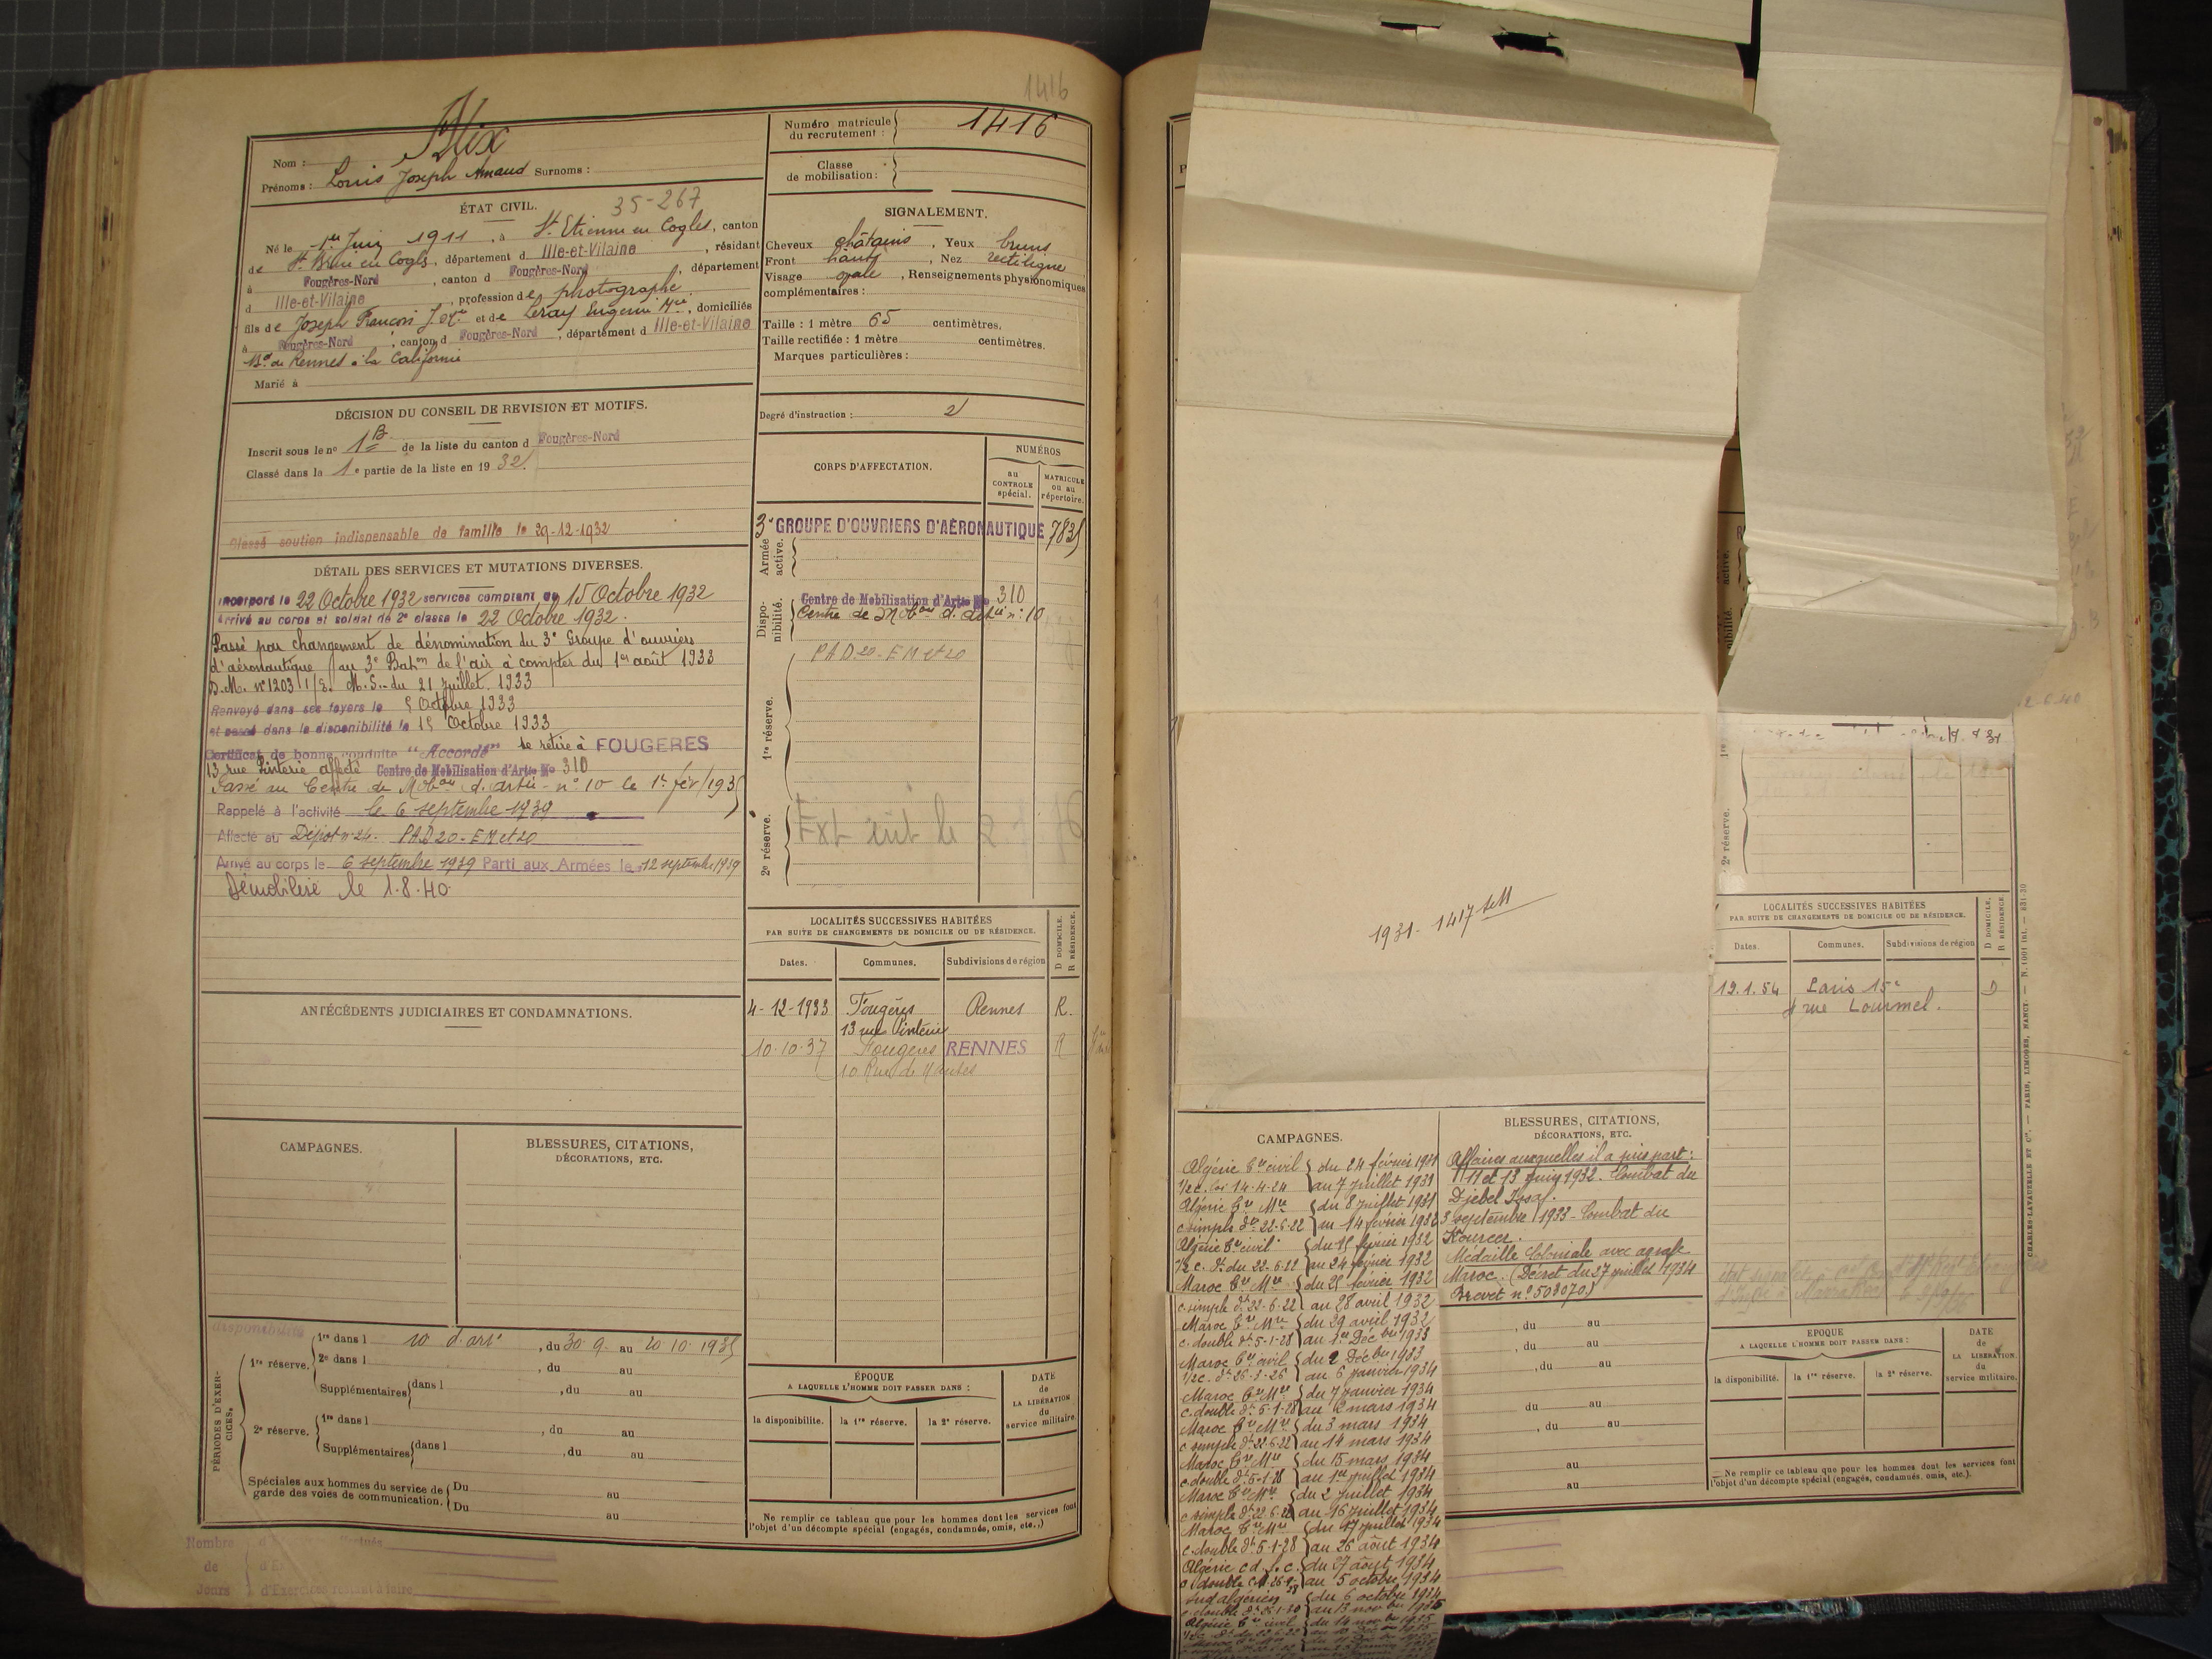 1416
Nom : Alix
Prénoms : Louis Joseph Amand Surnoms :
Numéro matricule du recrutement : 1416
Classe de mobilisation :
ÉTAT CIVIL.
35-267
Né le 1er Juin 1911, à St. Etienne en Cogles, canton
de St. Brice en Cogls, département d Ille-et-Vilaine, résidant
à Fougères-Nord, canton d Fougères-Nord, département
d Ille-et-Vilaine, profession de photographe
fils de Joseph François et de Leray Eugenie Mie, domiciliés
à Fougères-Nord, canton d Fougères-Nord, département d Ille-et-Vilaine
Bd. de Rennes à la Californie
Marié à
SIGNALEMENT.
Cheveux châtains, Yeux bruns
Front haut, Nez rectiligne
Visage ovale, Renseignements physionomiques
complémentaires :
Taille : 1 mètre 65 centimètres.
Taille rectifiée : 1 mètre centimètres.
Marques particulières :
Degré d'instruction : 2
DÉCISION DU CONSEIL DE REVISION ET MOTIFS.
Inscrit sous le no 1B de la liste du canton d Fougères-Nord
Classé dans la 1e partie de la liste en 1932.
Classé soutien indispensable de famille le 29-12-1932
CORPS D'AFFECTATION.
NUMÉROS
au CONTROLE spécial.
MATRICULE ou au répertoire.
Armée active.
3e GROUPE D'OUVRIERS D'AÉRONAUTIQUE 7835
Disponibilité.
Centre de Mobilisation d'Artie No 310
Centre de Mobon d'artie n° 10
1re réserve.
PAD 20 - EM et 20
2e réserve.
DÉTAIL DES SERVICES ET MUTATIONS DIVERSES.
Incorporé le 22 Octobre 1932 services comptant du 15 Octobre 1932
Arrivé au corps et soldat de 2e classe le 22 Octobre 1932.
Passé par changement de dénomination du 3e Groupe d'ouvriers
d'aéronautique au 3e Baton de l'air à compter du 1er août 1933
D.M. n° 1203 1/E. M.S. du 21 juillet 1933
Renvoyé dans ses foyers le 5 Octobre 1933
et passé dans la disponibilité le 15 Octobre 1933
Certificat de bonne conduite "Accordé" se retire à FOUGERES
13 rue Pinterie affecté Centre de Mobilisation d'Artie No 310
Passé au Centre de Mobon d'artie n° 10 le 1er fév 1935
Rappelé à l'activité le 6 septembre 1939
Affecté au Dépôt n° 24. PAD 20 - EM et 20
Arrivé au corps le 6 septembre 1939 Parti aux Armées le 12 septembre 1939
Démobilisé le 1.8.40.
LOCALITÉS SUCCESSIVES HABITÉES
PAR SUITE DE CHANGEMENTS DE DOMICILE OU DE RÉSIDENCE.
D DOMICILE. R RÉSIDENCE.
Dates. Communes. Subdivisions de région
4-12-1933 Fougères Rennes R.
13 rue Pinterie
10.10.37 Fougères RENNES R
10 Rue de Nantes
ANTÉCÉDENTS JUDICIAIRES ET CONDAMNATIONS.
CAMPAGNES.
BLESSURES, CITATIONS,
DÉCORATIONS, ETC.
PÉRIODES D'EXERCICES.
disponibilité
1re réserve. 1re dans l 10 d'arie, du 30.9. au 20.10.1935
2e dans l , du au
Supplémentaires dans l , du au
2e réserve. 1re dans l , du au
Supplémentaires dans l , du au
Spéciales aux hommes du service de garde des voies de communication. Du au
Du au
ÉPOQUE
A LAQUELLE L'HOMME DOIT PASSER DANS :
la disponibilité. la 1re réserve. la 2e réserve.
DATE de LA LIBÉRATION du service militaire.
Ne remplir ce tableau que pour les hommes dont les services font
l'objet d'un décompte spécial (engagés, condamnés, omis, etc.)
Nombre de Jours
d'Exercices restant à faire
1931 - 1417
CAMPAGNES.
Algérie Ere civil du 24 février 1931
1/2 c. loi 14.4.24 au 7 juillet 1931
Algérie Ere Mre du 8 juillet 1931
c. simple dt 22-6-22 au 14 février 1932
Algérie Ere civil du 15 février 1932
1/2 c. dt du 22.6.22 au 24 février 1932
Maroc Ere Mre du 25 février 1932
c. simple dt 22-6-22 au 28 avril 1932
Maroc Ere Mre du 29 avril 1932
c. double dt 5-1-28 au 1er Décbre 1933
Maroc Ere civil du 2 Décbre 1933
1/2 c. dt 26-1-26 au 6 janvier 1934
Maroc Ere Mre du 7 janvier 1934
c. double dt 5-1-28 au 2 mars 1934
Maroc Ere Mre du 3 mars 1934
c. simple dt 22-6-22 au 14 mars 1934
Maroc Ere Mre du 15 mars 1934
c. double dt 5-1-28 au 1er juillet 1934
Maroc Ere Mre du 2 juillet 1934
c. simple dt 22.6.22 au 16 juillet 1934
Maroc Ere Mre du 17 juillet 1934
c. double dt 5-1-28 au 26 août 1934
Algérie du 27 août 1934
c. double au 5 octobre 1934
Sud algérien du 6 octobre 1934
c. double au 13 novbre 1935
Algérie Ere civil du 14 novbre 1935
BLESSURES, CITATIONS,
DÉCORATIONS, ETC.
Affaires auxquelles il a pris part :
11 et 13 juin 1932. Combat du
Djebel
3 septembre 1933 - Combat du
Kouser.
Médaille Coloniale avec agrafe
Maroc. (Décret du 27 juillet 1934
Brevet n° 508070)
, du au
, du au
, du au
du au
, du au
au
au
2e réserve.
LOCALITÉS SUCCESSIVES HABITÉES
PAR SUITE DE CHANGEMENTS DE DOMICILE OU DE RÉSIDENCE.
D DOMICILE. R RÉSIDENCE
Dates. Communes. Subdivisions de région
19.1.54 Paris 15e D
rue Lourmel.
ÉPOQUE
A LAQUELLE L'HOMME DOIT PASSER DANS :
la disponibilité. la 1re réserve. la 2e réserve.
DATE de LA LIBÉRATION du service militaire.
Ne remplir ce tableau que pour les hommes dont les services font
l'objet d'un décompte spécial (engagés, condamnés, omis, etc.).
CHARLES-LAVAUZELLE ET Cie. — PARIS, LIMOGES, NANCY.